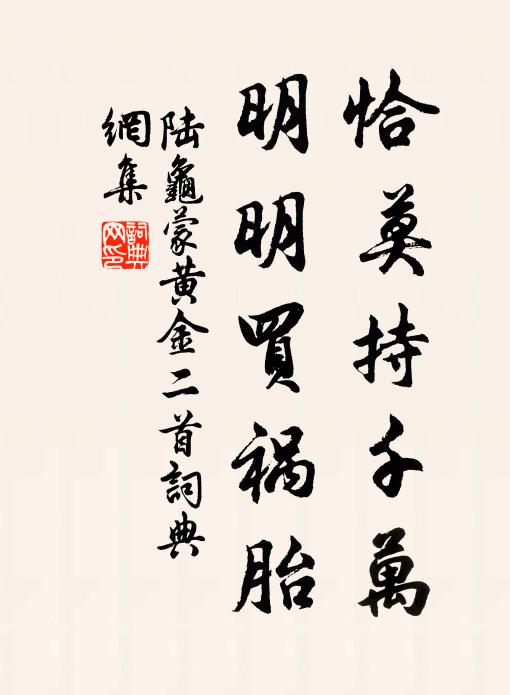 恰莫持千萬
明明買祸胎
陸龜蒙黄金二首詞典
網集
詞典網印